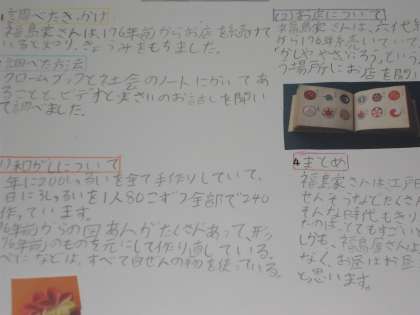 調べたきっかけ
福島家さんは、176年前からお店を続けて
いると知り、きょうみをもちました。
調べた方法
クロームブックと社会のノートにかいてあ
ることと、ビデオと実さいのお話しを聞い
て調べました。
(1)和がしについて
年に200しゅるいを全て手作りしていて、
日に3しゅるいを1人80こずつ全部で240
作っています。
176年前からの図あんがたくさんあって、形
176年前のものを元にして作り直している。
べになどは、すべて自ぜんの物を使っている。
(2)お店について
福島家さんは、六代
から176年続いていて
かしや さぶろう」という
う場所にお店を開
4 まとめ
福島家さんは江戸
せんそうなどたくさん
そんな時代もきり
たのは、とてもすごい
しかも、福島屋さんよ
なく、お店はお昼
と思います。